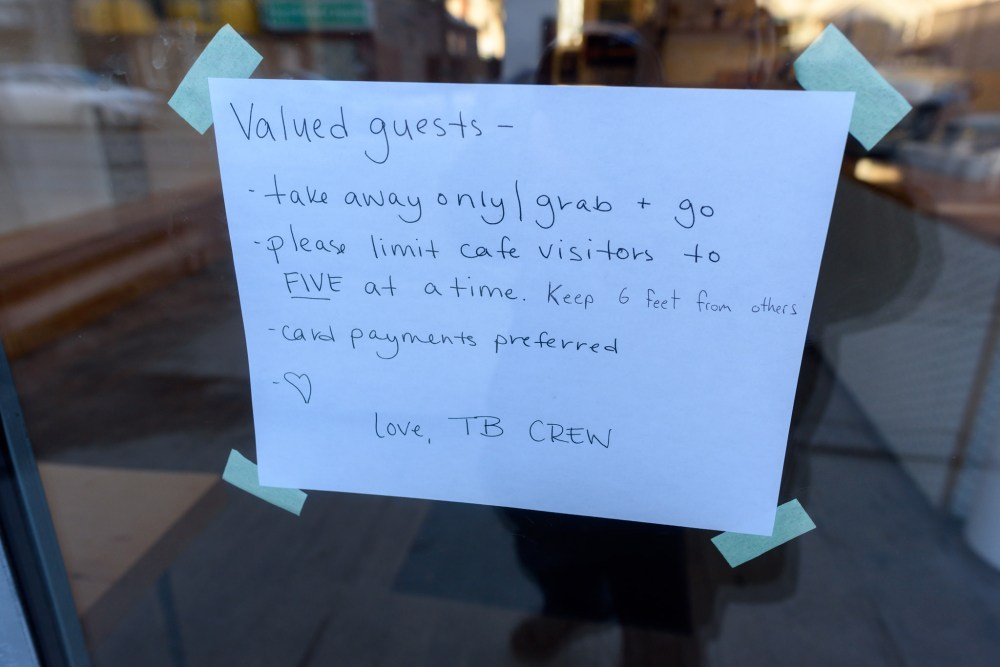 Valued guests -
- take away only/grab + go
- please limit cafe visitors to
FIVE at a time. Keep 6 feet from others
- card payments preferred
- ♡
love, TB CREW